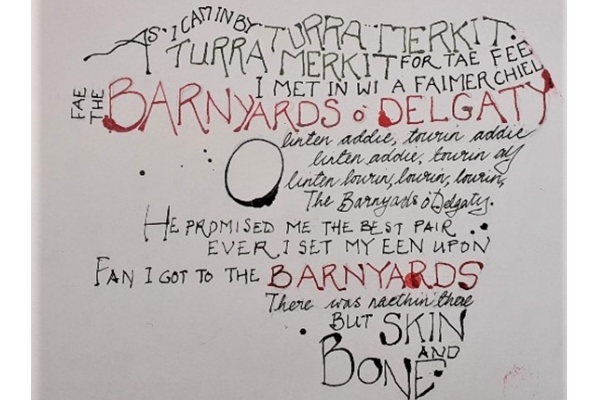 As I CAM IN BY TURRA MERKIT.
TURRA MERKIT FOR TAE FEE
I MET IN WI A FAIMER CHIEL
FAE THE BARNYARDS o' DELGATY
O linten addie, tourin addie
linten addie, tourin ay
linten lourin, lourin, lourin,
The Barnyads o'Delgaty.
HE PROMISED ME THE BEST PAIR
EVER I SET MY EEN UPON
FAN I GOT TO THE BARNYARDS
There was naethin there
BUT SKIN
AND
BONE